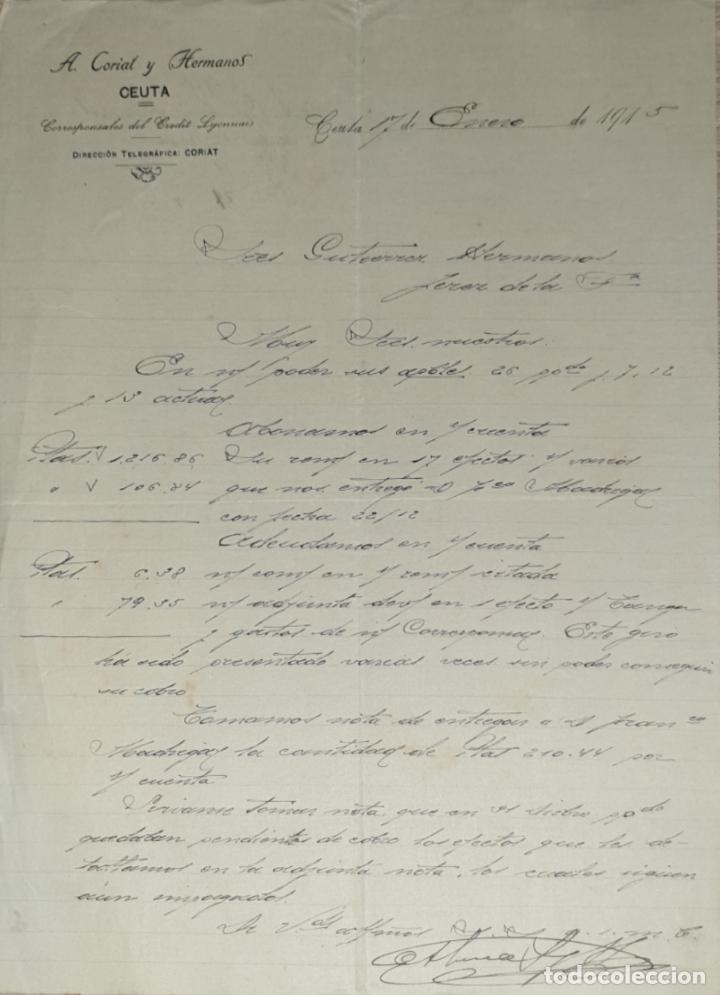 A. Coriat y Hermanos
CEUTA
Corresponsales del Credit Lyonnais
DIRECCIÓN TELEGRÁFICA: CORIAT
Ceuta 17 de Enero de 1915
Sres Gutierrez Hermanos
Jerez de la Fra
Muy Sres. nuestros:
En n/ poder sus 26 pdo 7.12
y 13 actual
Abonamos en s/ cuenta
Ptas. 1.216.86 Su rem/ en 17 efectos s/ varios
" 106.84 que nos entregó D. Fco Madrigal
con fecha 22/12
Adeudamos en s/ cuenta
Ptas. 6.38 n/ com/ en s/ rem/ citada
" 79.35 n/ adjunta dev/ en 1 efecto s/ Tanger
y gastos de n/ Corresponsal. Este giro
ha sido presentado varias veces sin poder conseguir
su cobro
Tomamos nota de entregar a D. Franco
Madrigal la cantidad de Ptas 210.44 por
s/ cuenta
Sirvanse tomar nota que en 31 Dicbre pdo
quedaban pendientes de cobro los efectos que les de-
tallamos en la adjunta nota, los cuales siguen
aun impagados.
De Vds affmos S. S. q. s. m. b.
todocoleccion